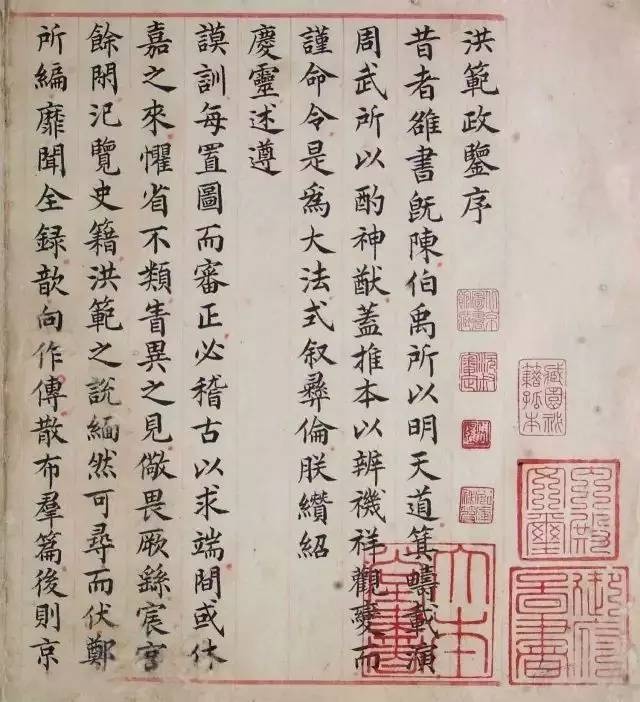 洪範政鑒序
昔者雒書旣陳伯禹所以明天道箕疇載演
周武所以酌神猷蓋推本以辨禨祥觀變而
謹命令是爲大法式叙彝倫朕纘紹
慶靈述遵
謨訓每置圖而審正必稽古以求端間或休
嘉之來懼省不類眚異之見儆畏厥繇宸宫
餘閑氾覽史籍洪範之說緬然可尋而伏鄭
所編靡聞全録歆向作傳散布羣篇後則京